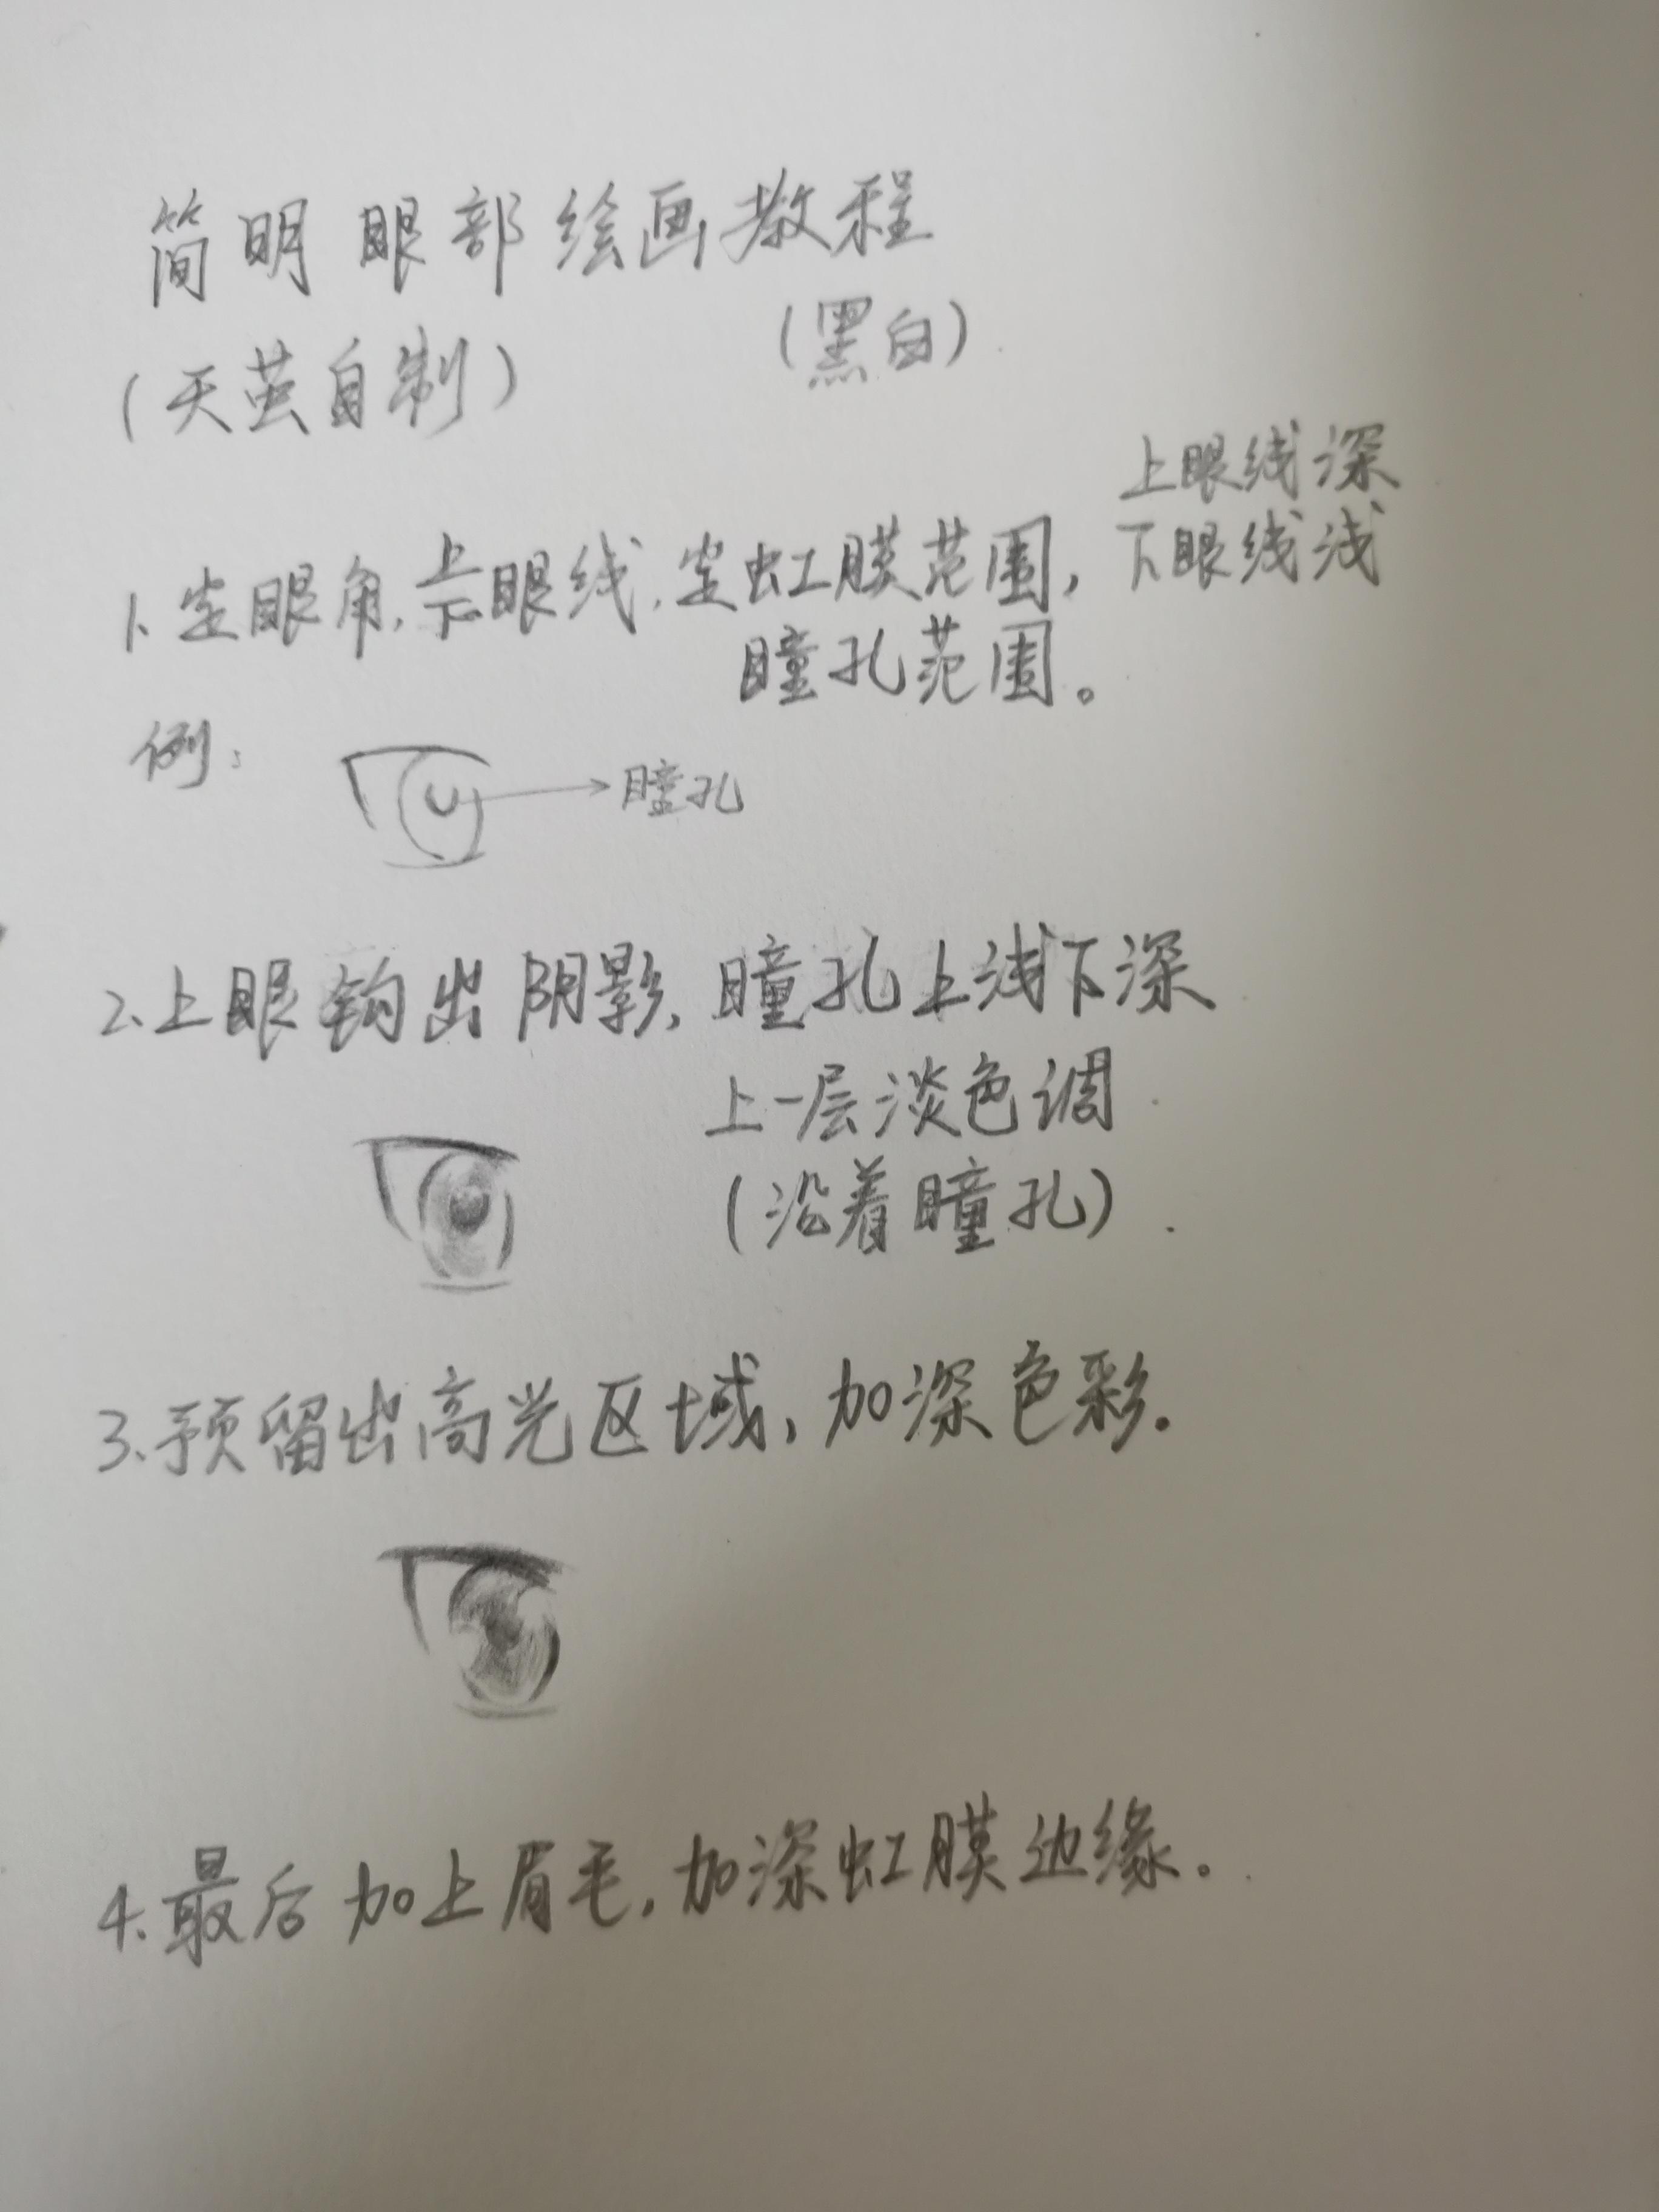 简明眼部绘画教程
(黑白)
(天茧自制)
上眼线深
下眼线浅
1、定眼角,上下眼线,定虹膜范围,
瞳孔范围。
例:
瞳孔
2、上眼钩出阴影,瞳孔上浅下深
上一层淡色调
(沿着瞳孔)
3、预留出高光区域,加深色彩.
4、最后加上眉毛,加深虹膜边缘。